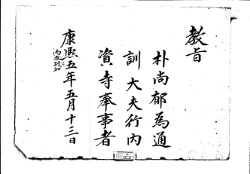 教旨
朴尚郁為通
訓大夫行內
資寺奉事者
康熙五年五月十三日